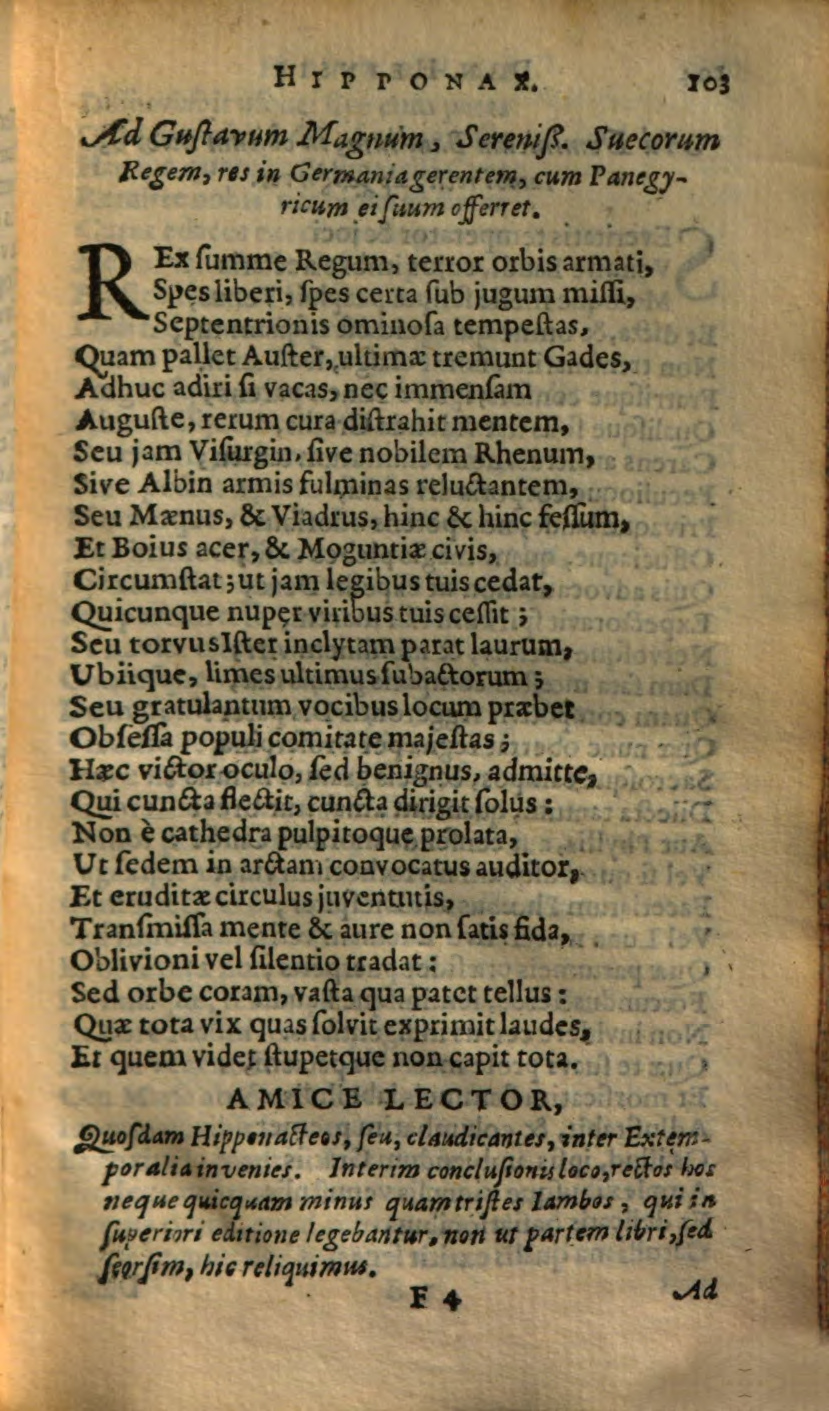 HIPPONAX. 103
Ad Guſtavum Magnum, Sereniſſ. Suecorum
Regem, res in Germania gerentem, cum Panegy-
ricum ei ſuum offerret.
REx ſumme Regum, terror orbis armati,
Spes liberi, ſpes certa ſub jugum miſſi,
Septentrionis ominoſa tempeſtas,
Quam pallet Auſter, ultimæ tremunt Gades,
Adhuc adiri ſi vacas, nec immenſam
Auguſte, rerum cura diſtrahit mentem,
Seu jam Viſurgin, ſive nobilem Rhenum,
Sive Albin armis fulminas reluctantem,
Seu Mænus, & Viadrus, hinc & hinc feſſum,
Et Boius acer, & Moguntiæ civis,
Circumſtat; ut jam legibus tuis cedat,
Quicunque nuper viribus tuis ceſſit;
Seu torvus Iſter inclytam parat laurum,
Ubiique, limes ultimus ſubactorum;
Seu gratulantum vocibus locum præbet
Obſeſſa populi comitate majeſtas;
Hæc victor oculo, ſed benignus, admitte,
Qui cuncta flectit, cuncta dirigit ſolus:
Non è cathedra pulpitoque prolata,
Ut ſedem in arctam convocatus auditor,
Et eruditæ circulus juventutis,
Tranſmiſſa mente & aure non ſatis fida,
Oblivioni vel ſilentio tradat:
Sed orbe coram, vaſta qua patet tellus:
Quæ tota vix quas ſolvit exprimit laudes,
Et quem videt ſtupetque non capit tota.
AMICE LECTOR,
Quoſdam Hipponacteos, ſeu, claudicantes, inter Extem-
poralia invenies. Interim concluſionis loco, rectos hos
neque quicquam minus quam triſtes Iambos, qui in
ſuperiori editione legebantur, non ut partem libri, ſed
ſeorſim, hic reliquimus.
F 4 Ad